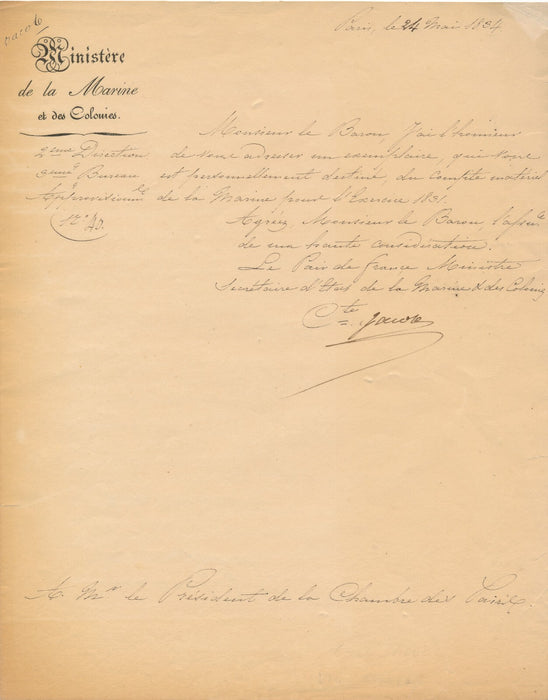 Jacob
Paris, le 24 Mai 1834
Ministère
de la Marine
et des Colonies.
2eme Direction
3eme Bureau
Approvisionnts
No 43.
Monsieur le Baron, J'ai l'honneur
de vous adresser un exemplaire, qui vous
est personnellement destiné, du compte matériel
de la Marine pour l'Exercice 1831.
Agréez, Monsieur le Baron, l'assurce
de ma haute considération.
Le Pair de france Ministre
Secrétaire d'Etat de la Marine & des Colonies
Cte Jacob
A Mr le Président de la Chambre des Pairs.